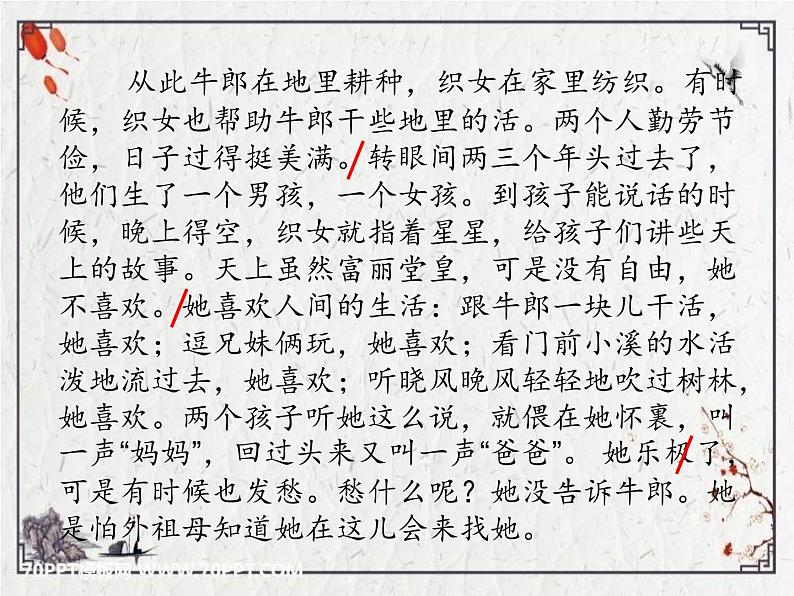 从此牛郎在地里耕种，织女在家里纺织。有时
候，织女也帮助牛郎干些地里的活。两个人勤劳节
俭，日子过得挺美满。转眼间两三个年头过去了，
他们生了一个男孩，一个女孩。到孩子能说话的时
候，晚上得空，织女就指着星星，给孩子们讲些天
上的故事。天上虽然富丽堂皇，可是没有自由，她
不喜欢。她喜欢人间的生活：跟牛郎一块儿干活，
她喜欢；逗兄妹俩玩，她喜欢；看门前小溪的水活
泼地流过去，她喜欢；听晓风晚风轻轻地吹过树林，
她喜欢。两个孩子听她这么说，就偎在她怀裏，叫
一声“妈妈”，回过头来又叫一声“爸爸”。 她乐极了，
可是有时候也发愁。愁什么呢？她没告诉牛郎。她
是怕外祖母知道她在这儿会来找她。
70PPT模板网 WWW.70PPT.COM